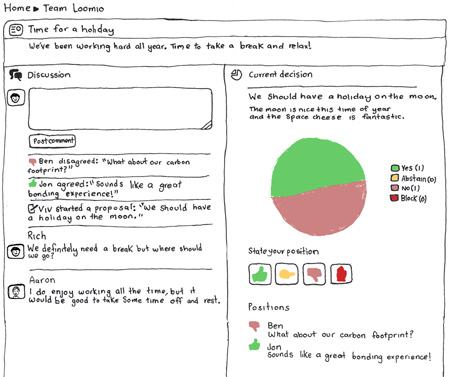 Home ▶ Team Loomio
Time for a holiday
We've been working hard all year. Time to take a break and relax!
Discussion
Post comment
Ben disagreed: "What about our carbon
footprint?"
Jon agreed: "Sounds like a great
bonding experience!"
Viv started a proposal: "We should have
a holiday on the moon."
Rich
We definitely need a break but where should
we go?
Aaron
I do enjoy working all the time, but it
would be good to take some time off and rest.
Current decision
We should have a holiday on the moon.
The moon is nice this time of year
and the space cheese is fantastic.
Yes (1)
Abstain (0)
No (1)
Block (0)
State your position
Positions
Ben
What about our carbon footprint?
Jon
Sounds like a great bonding experience!